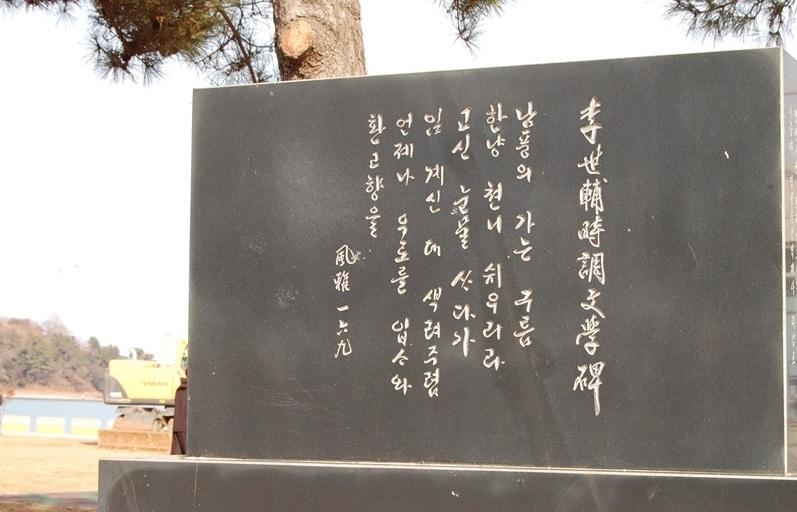 李世輔時調文學碑
남풍의 가는 구름
한냥 천니 쉬우리라
고신 눈물
임 계신 데
언제나 우로를
환고향을
風雅 一六九
VOLVO